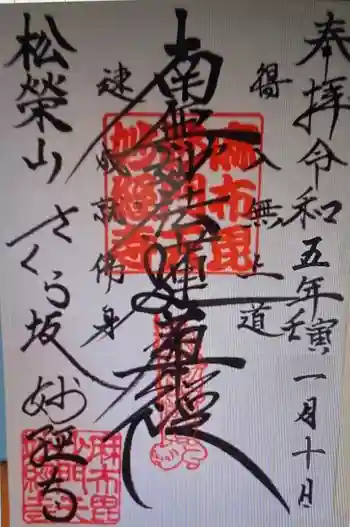 奉拝 令和五年壬寅 一月十日
得入無上道
南無妙法蓮華經
速成就佛身
松榮山 さくら坂 妙經寺
麻布毘
沙門天
妙經寺
麻布毘
沙門天
妙經寺